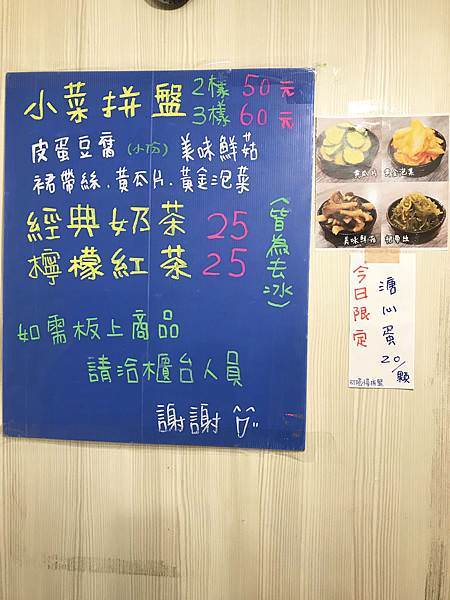 小菜拼盤 2樣 50元
3樣 60元
皮蛋豆腐(小份) 美味鮮菇
裙帶絲、黃瓜片、黃金泡菜
經典奶茶 25
檸檬紅茶 25
(皆為去冰)
如需板上商品
請洽櫃台人員
謝謝
黃瓜片 黃金泡菜
美味鮮菇 裙帶絲
今日限定
溏心蛋
20/顆